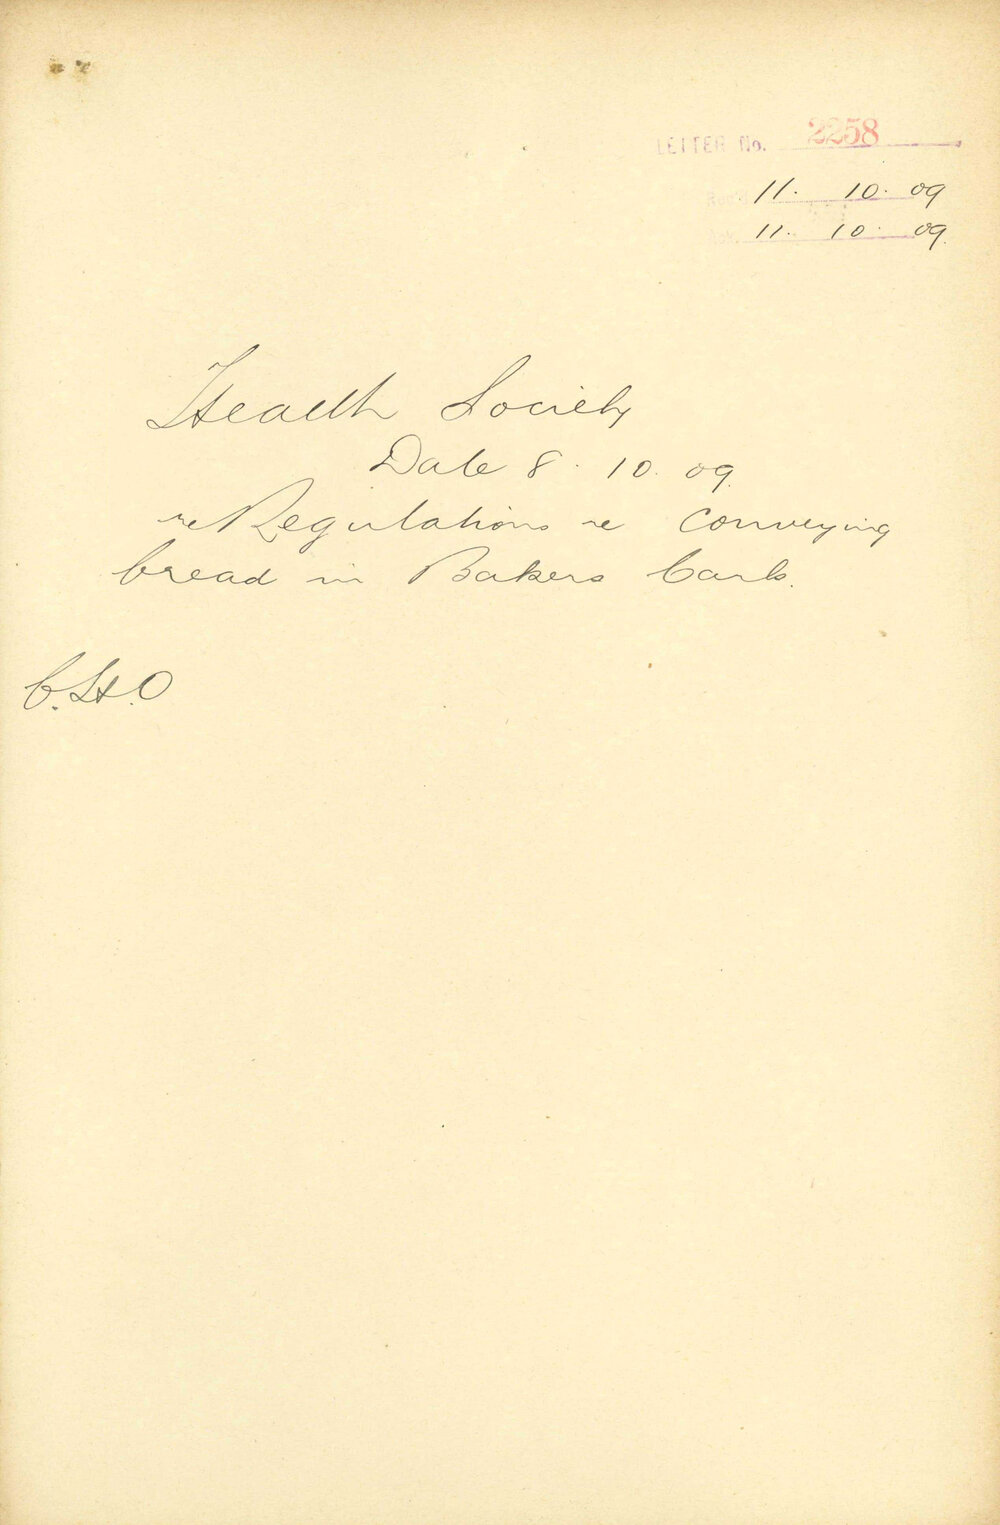 LETTER No. 2258
Rec'd 11. 10. 09
Ack. 11. 10. 09.
Health Society
Date 8. 10. 09.
re Regulations re conveying
bread in Bakers Carts.
C.H.O